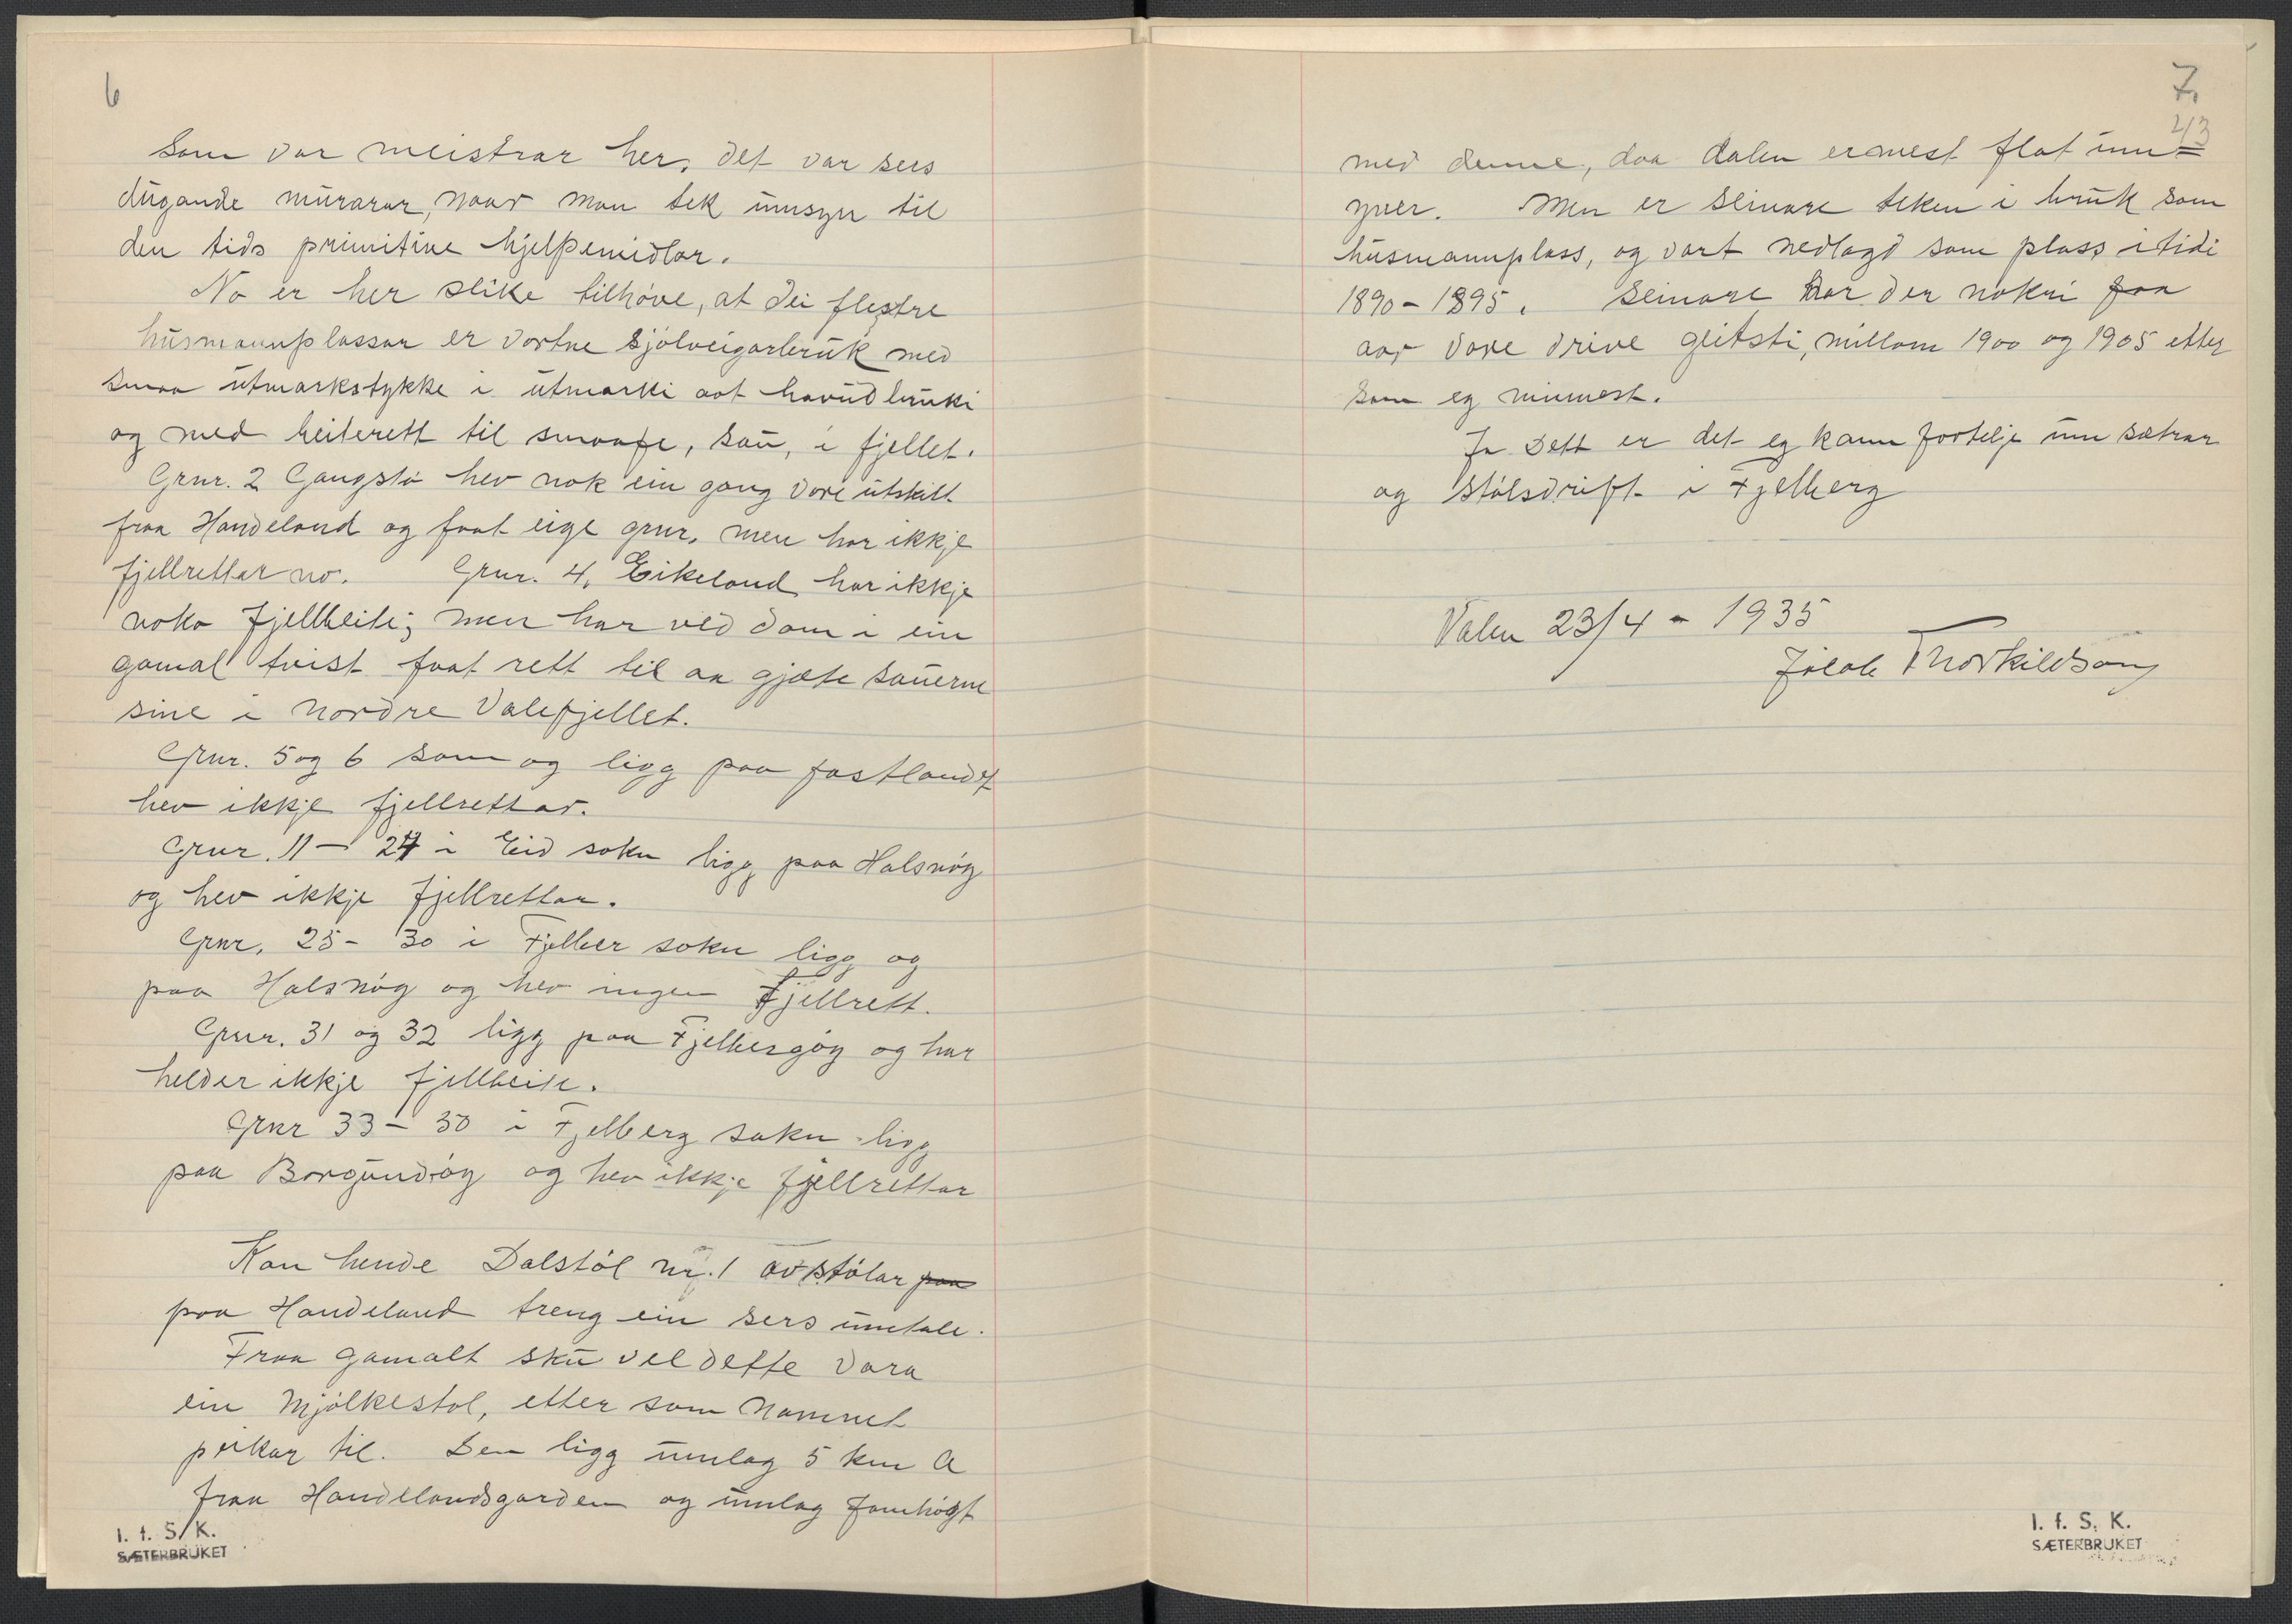 6
som var meistrar her, det var sers
dugande murarar, naar man tek umsyn til
den tids primitive hjelpemidlar.
No er her slike tilhøve, at dei flestre
husmannplassar er vortne sjølveigarbruk med
smaa utmarkstykke i utmarki aat hovudbruki
og med beiterett til smaafe, sau, i fjellet.
Grnr. 2 Gangstø hev nok ein gong vore utskilt
fraa Handeland og faat eige grnr. men har ikkje
fjellrettar no. Grnr. 4, Eikeland har ikkje
noko fjellbeite; men har ved dom i ein
gamal tvist faat rett til aa gjæte sauerne
sine i nordre Valefjellet.
Grnr. 5 og 6 som og ligg paa fastlandet
hev ikkje fjellrettar.
Grnr. 11 - 24 i Eid sokn ligg paa Halsnøy
og hev ikkje fjellrettar.
Grnr. 25 - 30 i Fjelber sokn ligg og
paa Halsnøy og hev ingen fjellrett.
Grnr. 31 og 32 ligg paa Fjelbergøy og har
helder ikkje fjellbeite.
Grnr 33 - 50 i Fjelberg sokn ligg
paa Borgundøy og hev ikkje fjellrettar
Kan hende Dalstøl nr. 1 av stølar paa
paa Handeland treng ein sers umtale.
Fraa gamalt sku vel dette vara
ein mjølkestøl, etter som namnet
peikar til. Den ligg umlag 5 km A
fraa Handelandsgarden og umlag jamhøgt
I. f. S. K.
SÆTERBRUKET
7.
43
med denne, daa dalen er mest flat inn=
yver. Men er seinare teken i bruk som
husmannplass, og vart nedlagd som plass i tidi
1890 - 1895. Seinare har der nokri faa
aar vore drive geitsti, millom 1900 og 1905 etter
som eg minnest.
Ja Dett er det eg kann fortelje um sætrar
og stølsdrift i Fjelberg
Valen 23/4 - 1935
Jakob Thorkildsen
I. f. S. K.
SÆTERBRUKET